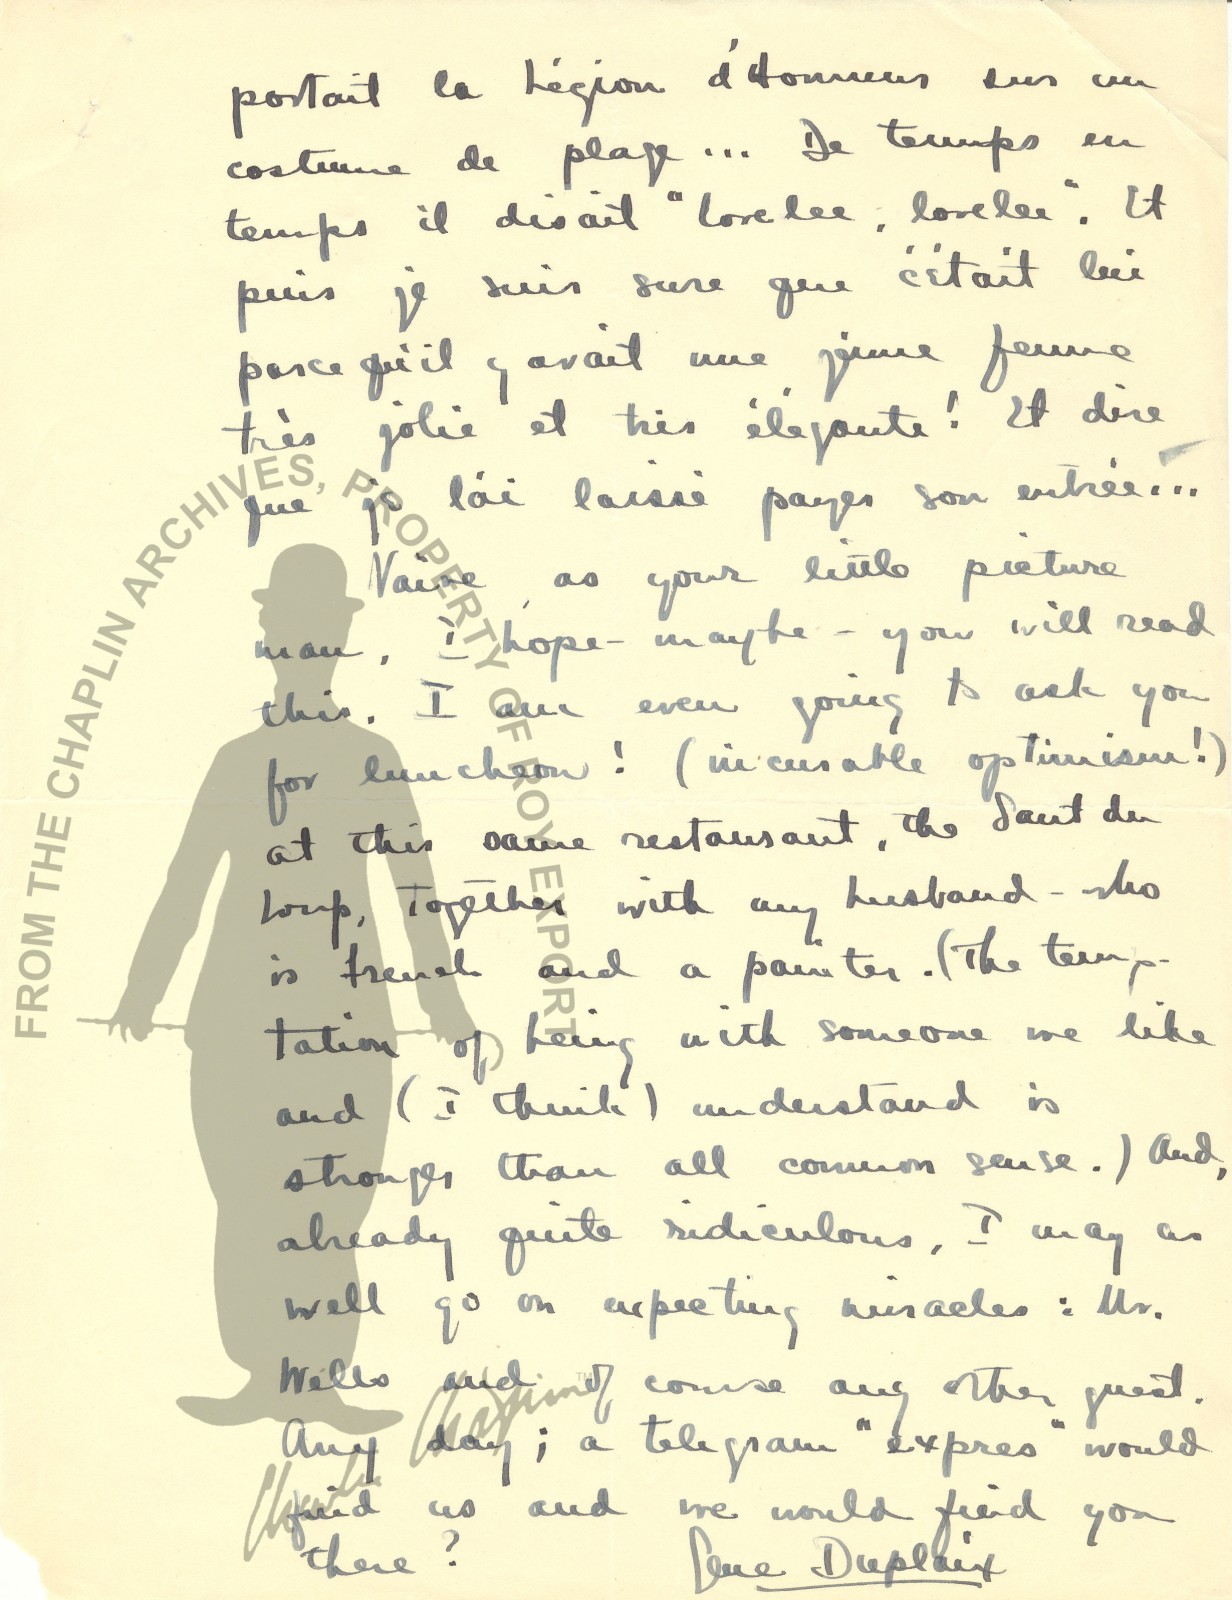 portait la Légion d'Honneur sur un
costume de plage... De temps en
temps il disait "lovelee, lovelee". Et
puis je suis sure que c'était lui
parcequ'il y avait une jeune femme
très jolie et très élégante! Et dire
que je l'ai laissé payer son entrée...
Naive, as your little picture
man, I hope - maybe - you will read
this. I am even going to ask you
for luncheon! (incurable optimism!)
at this same restaurant, the Saut du
Loup, together with my husband - who
is french and a painter. (The temp-
tation of being with someone we like
and (I think) understand is
stronger than all common sense.) And,
already quite ridiculous, I may as
well go on expecting miracles: Mr.
Wells and of course any other guest.
Any day; a telegram "expres" would
find us and we would find you
there?
Gene Duplaix
FROM THE CHAPLIN ARCHIVES, PROPERTY OF ROY EXPORT
Charlie Chaplin™